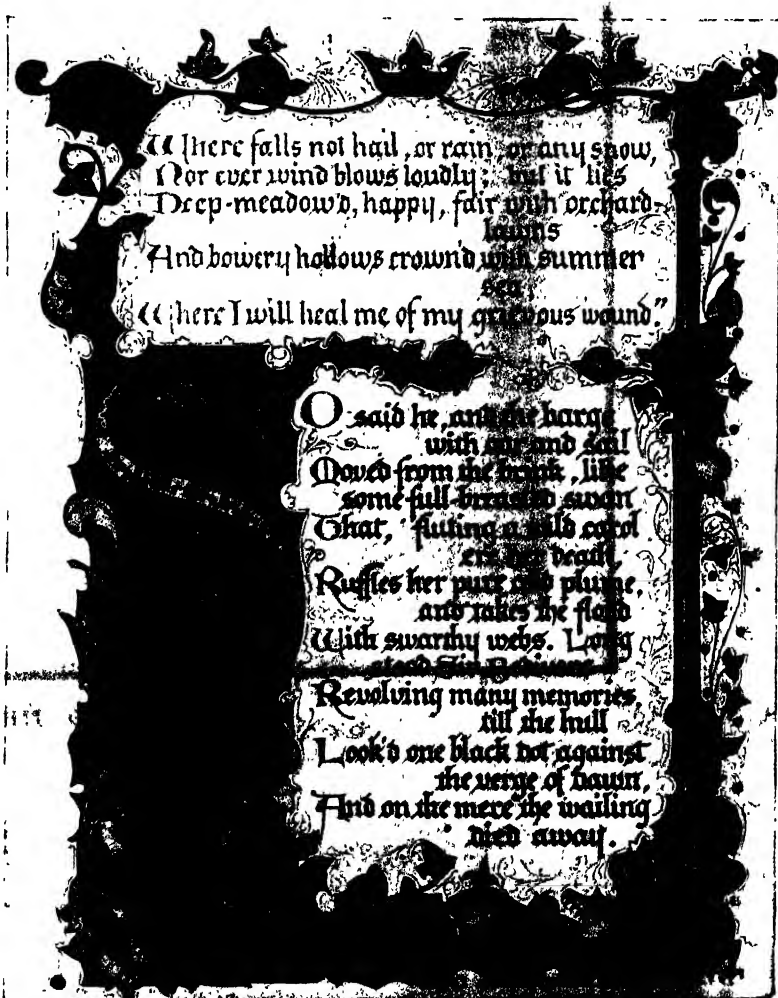 Where falls not hail, or rain or any snow,
Nor ever wind blows loudly; but it lies
Deep-meadow'd, happy, fair with orchard-
lawns
And bowery hollows crown'd with summer
sea,
Where I will heal me of my grievous wound."
O said he, and the barge
with oar and sail
Moved from the brink, like
some full-breasted swan
That, fluting a wild carol
ere her death,
Ruffles her pure cold plume,
and takes the flood
With swarthy webs. Long
stood Sir Bedivere
Revolving many memories,
till the hull
Look'd one black dot against
the verge of dawn,
And on the mere the wailing
died away.